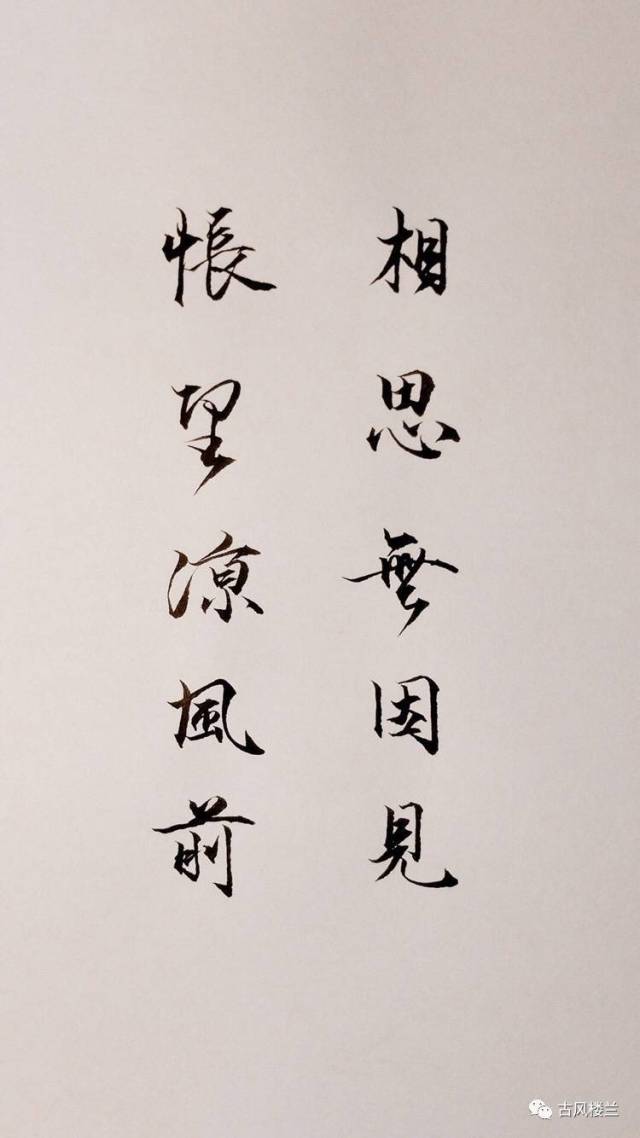 相思無因見
悵望涼風前
古风楼兰